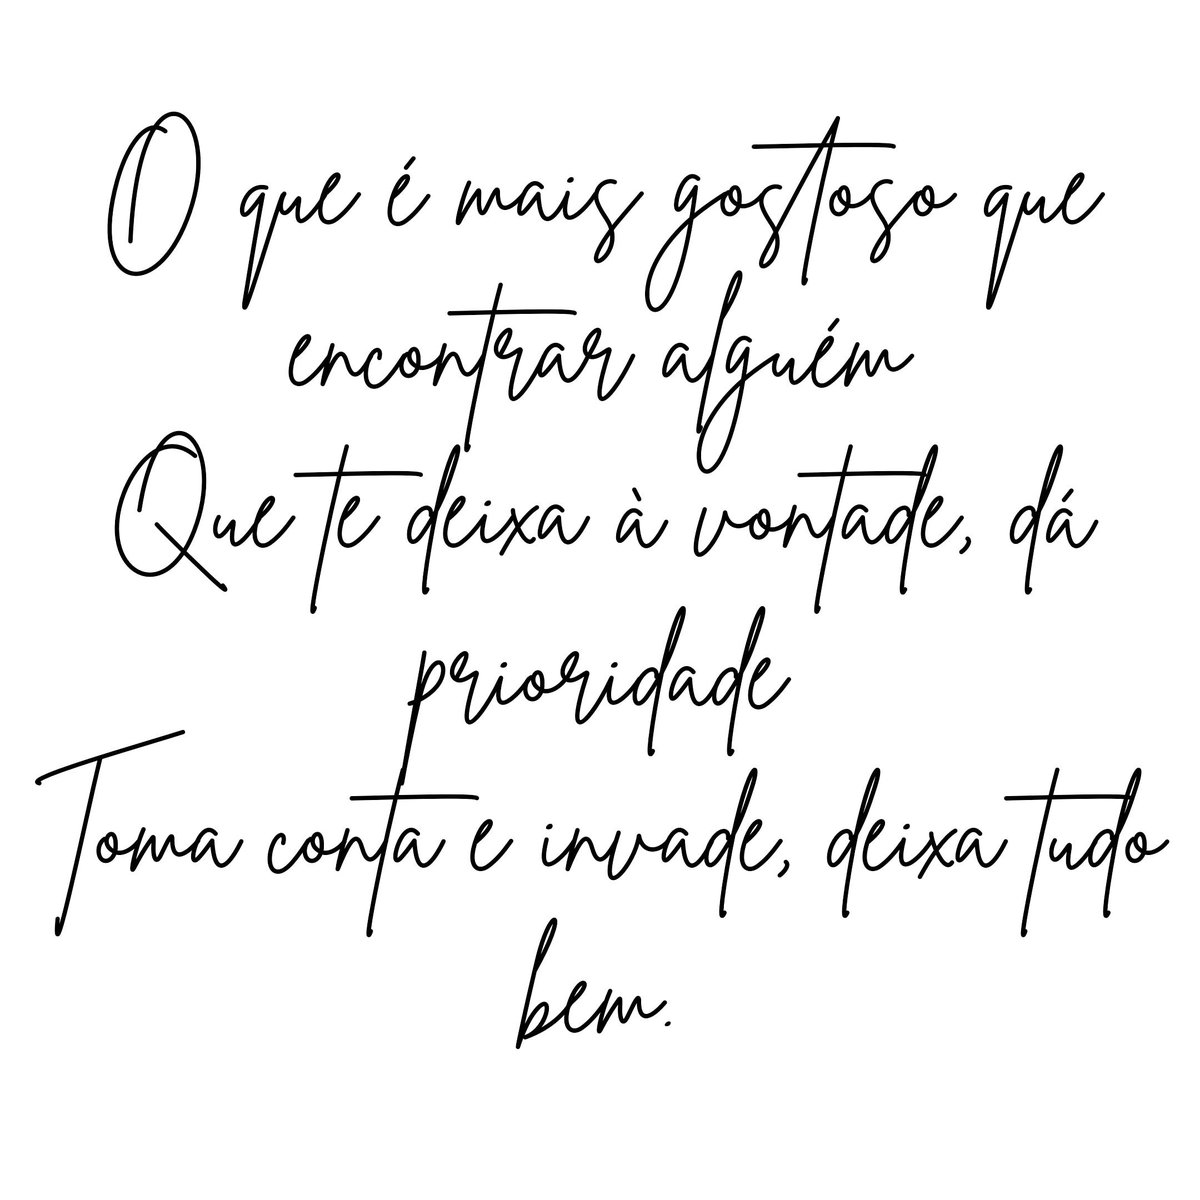 O que é mais gostoso que
encontrar alguém
Que te deixa à vontade, dá
prioridade
Toma conta e invade, deixa tudo
bem.